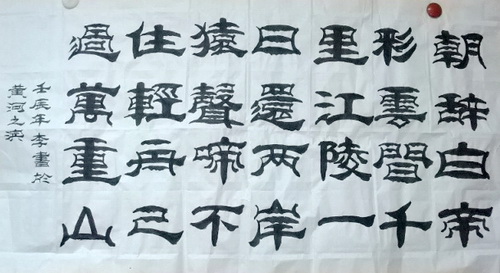 朝辞白帝
彩雲間千
里江陵一
日還两岸
猿聲啼不
住輕舟已
過萬重山
壬辰年李書於
黄河之滨